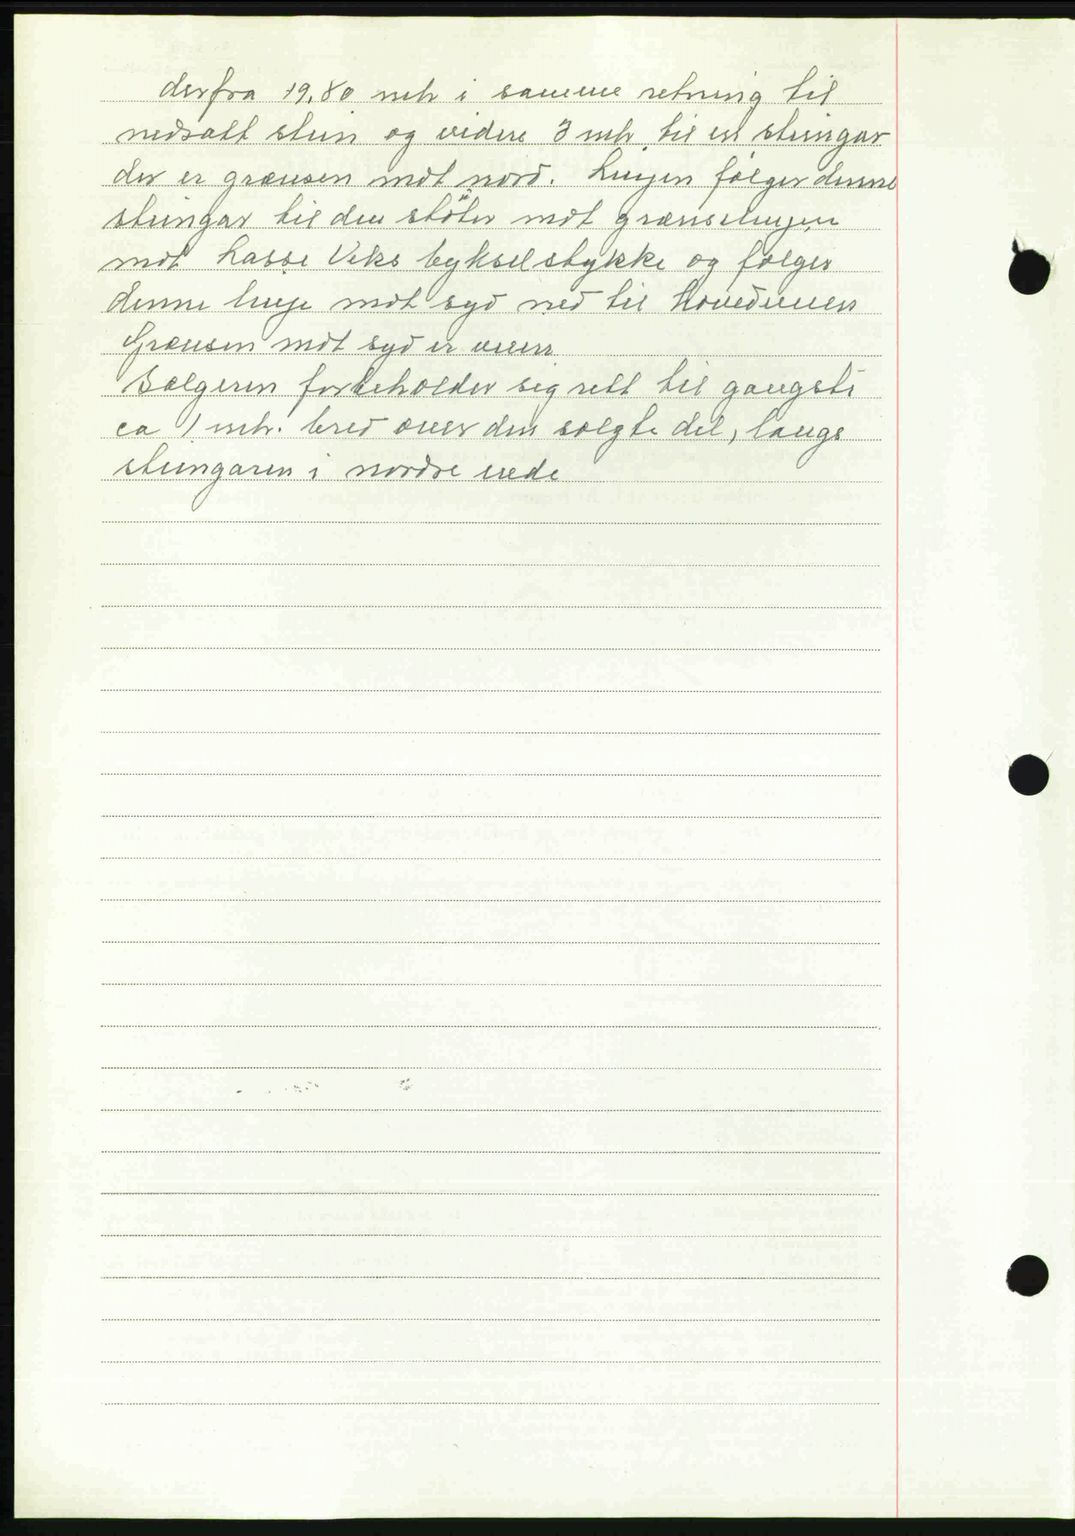 derfra 19,80 mtr i samme retning til
nedsatt stein og videre 3 mtr. til en steingar
der er grænsen mot nord. Linjen følger denne
steingar til den støter mot grænselinjen
mot Lasse Viks bykselstykke og følger
denne linje mot syd ned til Hovedveien
Grænsen mot syd er veien
Sælgeren forbeholder sig rett til gangsti
ca 1 mtr. bred over den solgte del, langs
steingaren i nordre ende